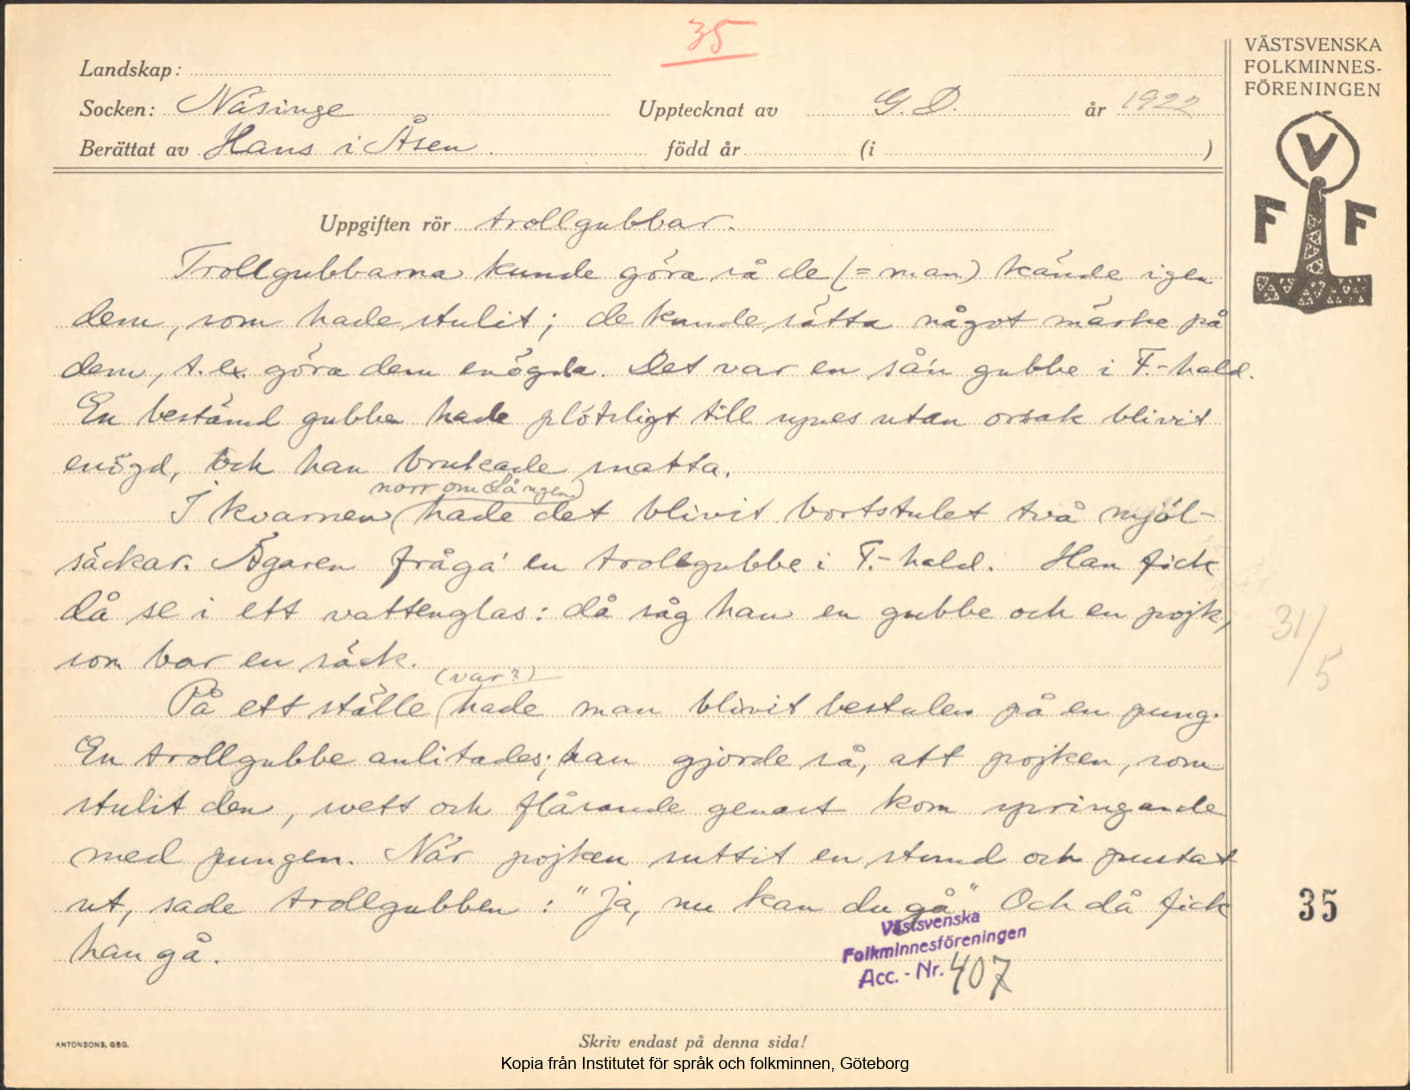 35
Landskap:
Socken: Näsinge Upptecknat av G. D. år 1922
Berättat av Hans i Åsen. född år (i )
Uppgiften rör trollgubbar.
Trollgubbarna kunde göra så de (= man) kände igen
dem, som hade stulit; de kunde sätta något märke på
dem, t. ex. göra dem enögda. Det var en så'n gubbe i F.-hald.
En bestämd gubbe hade plötsligt till synes utan orsak blivit
enögd, och han brukade snatta.
norr om Lången)
I kvarnen (hade det blivit bortstulet två mjöl-
säckar. Ägaren fråga' en trollgubbe i F.-hald. Han fick
då se i ett vattenglas: då såg han en gubbe och en pojk,
som bar en säck.
(var?)
På ett ställe (hade man blivit bestulen på en pung.
En trollgubbe anlitades; han gjorde så, att pojken, som
stulit den, svett och flåsande genast kom springande
med pungen. När pojken suttit en stund och pustat
ut, sade trollgubben: "Ja, nu kan du gå." Och då fick
han gå.
Västsvenska
Folkminnesföreningen
Acc.-Nr. 407
ANTONSONS, GBG.
Skriv endast på denna sida!
Kopia från Institutet för språk och folkminnen, Göteborg
VÄSTSVENSKA
FOLKMINNES-
FÖRENINGEN
V
F F
31/5
35